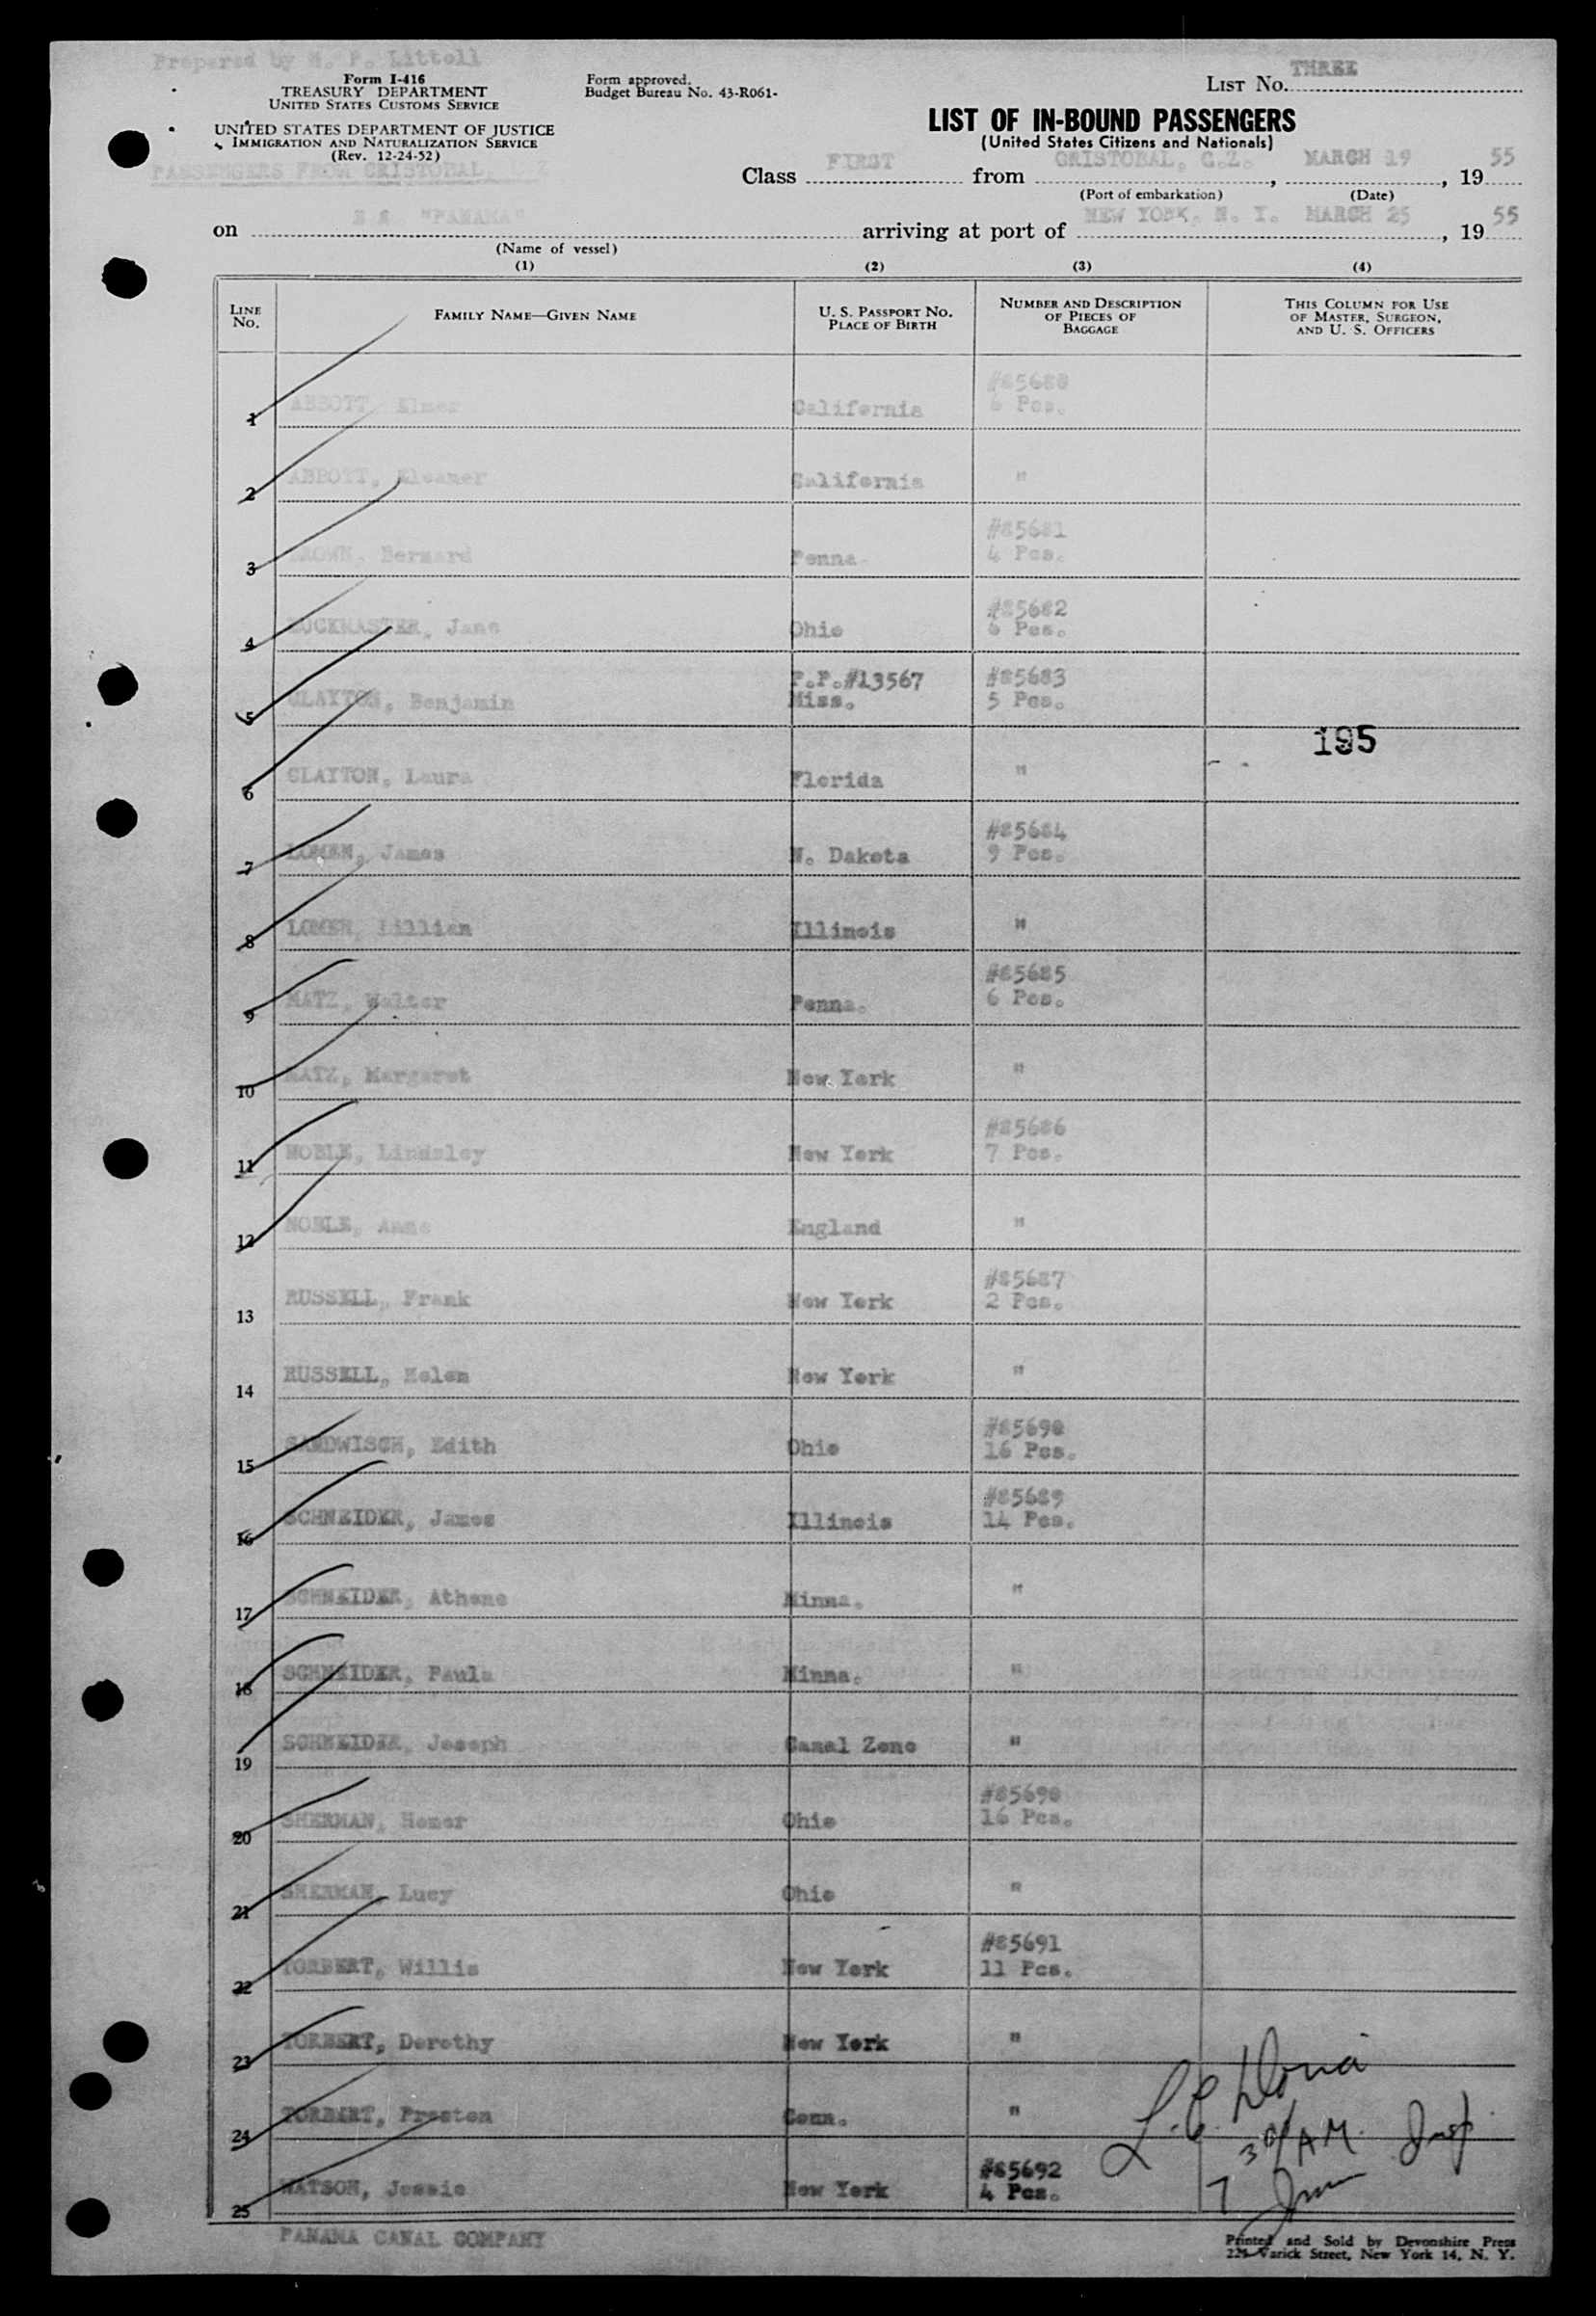 Prepared by H. P. Littell
Form I-416
TREASURY DEPARTMENT
UNITED STATES CUSTOMS SERVICE
Form approved.
Budget Bureau No. 43-R061-
LIST NO. THREE
UNITED STATES DEPARTMENT OF JUSTICE
IMMIGRATION AND NATURALIZATION SERVICE
(Rev. 12-24-52)
LIST OF IN-BOUND PASSENGERS
(United States Citizens and Nationals)
PASSENGERS FROM CRISTOBAL,
Class FIRST from CRISTOBAL, C.Z., MARCH 19, 19 55
(Port of embarkation) (Date)
on S S "PANAMA" arriving at port of NEW YORK, N. Y. MARCH 25, 19 55
(Name of vessel)
(1) (2) (3) (4)
LINE NO. FAMILY NAME—GIVEN NAME U. S. PASSPORT NO. PLACE OF BIRTH NUMBER AND DESCRIPTION OF PIECES OF BAGGAGE THIS COLUMN FOR USE OF MASTER, SURGEON, AND U. S. OFFICERS
#85680
1 ABBOTT, Elmer California 6 Pcs.
2 ABBOTT, Eleanor California "
#85681
3 BROWN, Bernard Penna. 4 Pcs.
#85682
4 BUCKMASTER, Jane Ohio 6 Pcs.
P.P.#13567 #85683
5 CLAYTON, Benjamin Miss. 5 Pcs.
195
6 CLAYTON, Laura Florida "
#85684
7 LOMEN, James N. Dakota 9 Pcs.
8 LOMEN, Lillian Illinois "
#85685
9 MATZ, Walter Penna. 6 Pcs.
10 MATZ, Margaret New York "
#85686
11 NOBLE, Lindsley New York 7 Pcs.
12 NOBLE, Anne England "
#85687
13 RUSSELL, Frank New York 2 Pcs.
14 RUSSELL, Helen New York "
#85690
15 SANDWISCH, Edith Ohio 16 Pcs.
#85689
16 SCHNEIDER, James Illinois 14 Pcs.
17 SCHNEIDER, Athene Minna. "
18 SCHNEIDER, Paula Minna. "
19 SCHNEIDER, Joseph Canal Zone "
#85690
20 SHERMAN, Homer Ohio 16 Pcs.
21 SHERMAN, Lucy Ohio "
#85691
22 TORBERT, Willis New York 11 Pcs.
23 TORBERT, Dorothy New York "
24 TORBERT, Preston Conn. "
30/AM. Insp
#85692
25 WATSON, Jessie New York 4 Pcs.
7
PANAMA CANAL COMPANY
Printed and Sold by Devonshire Press
Varick Street, New York 14, N. Y.